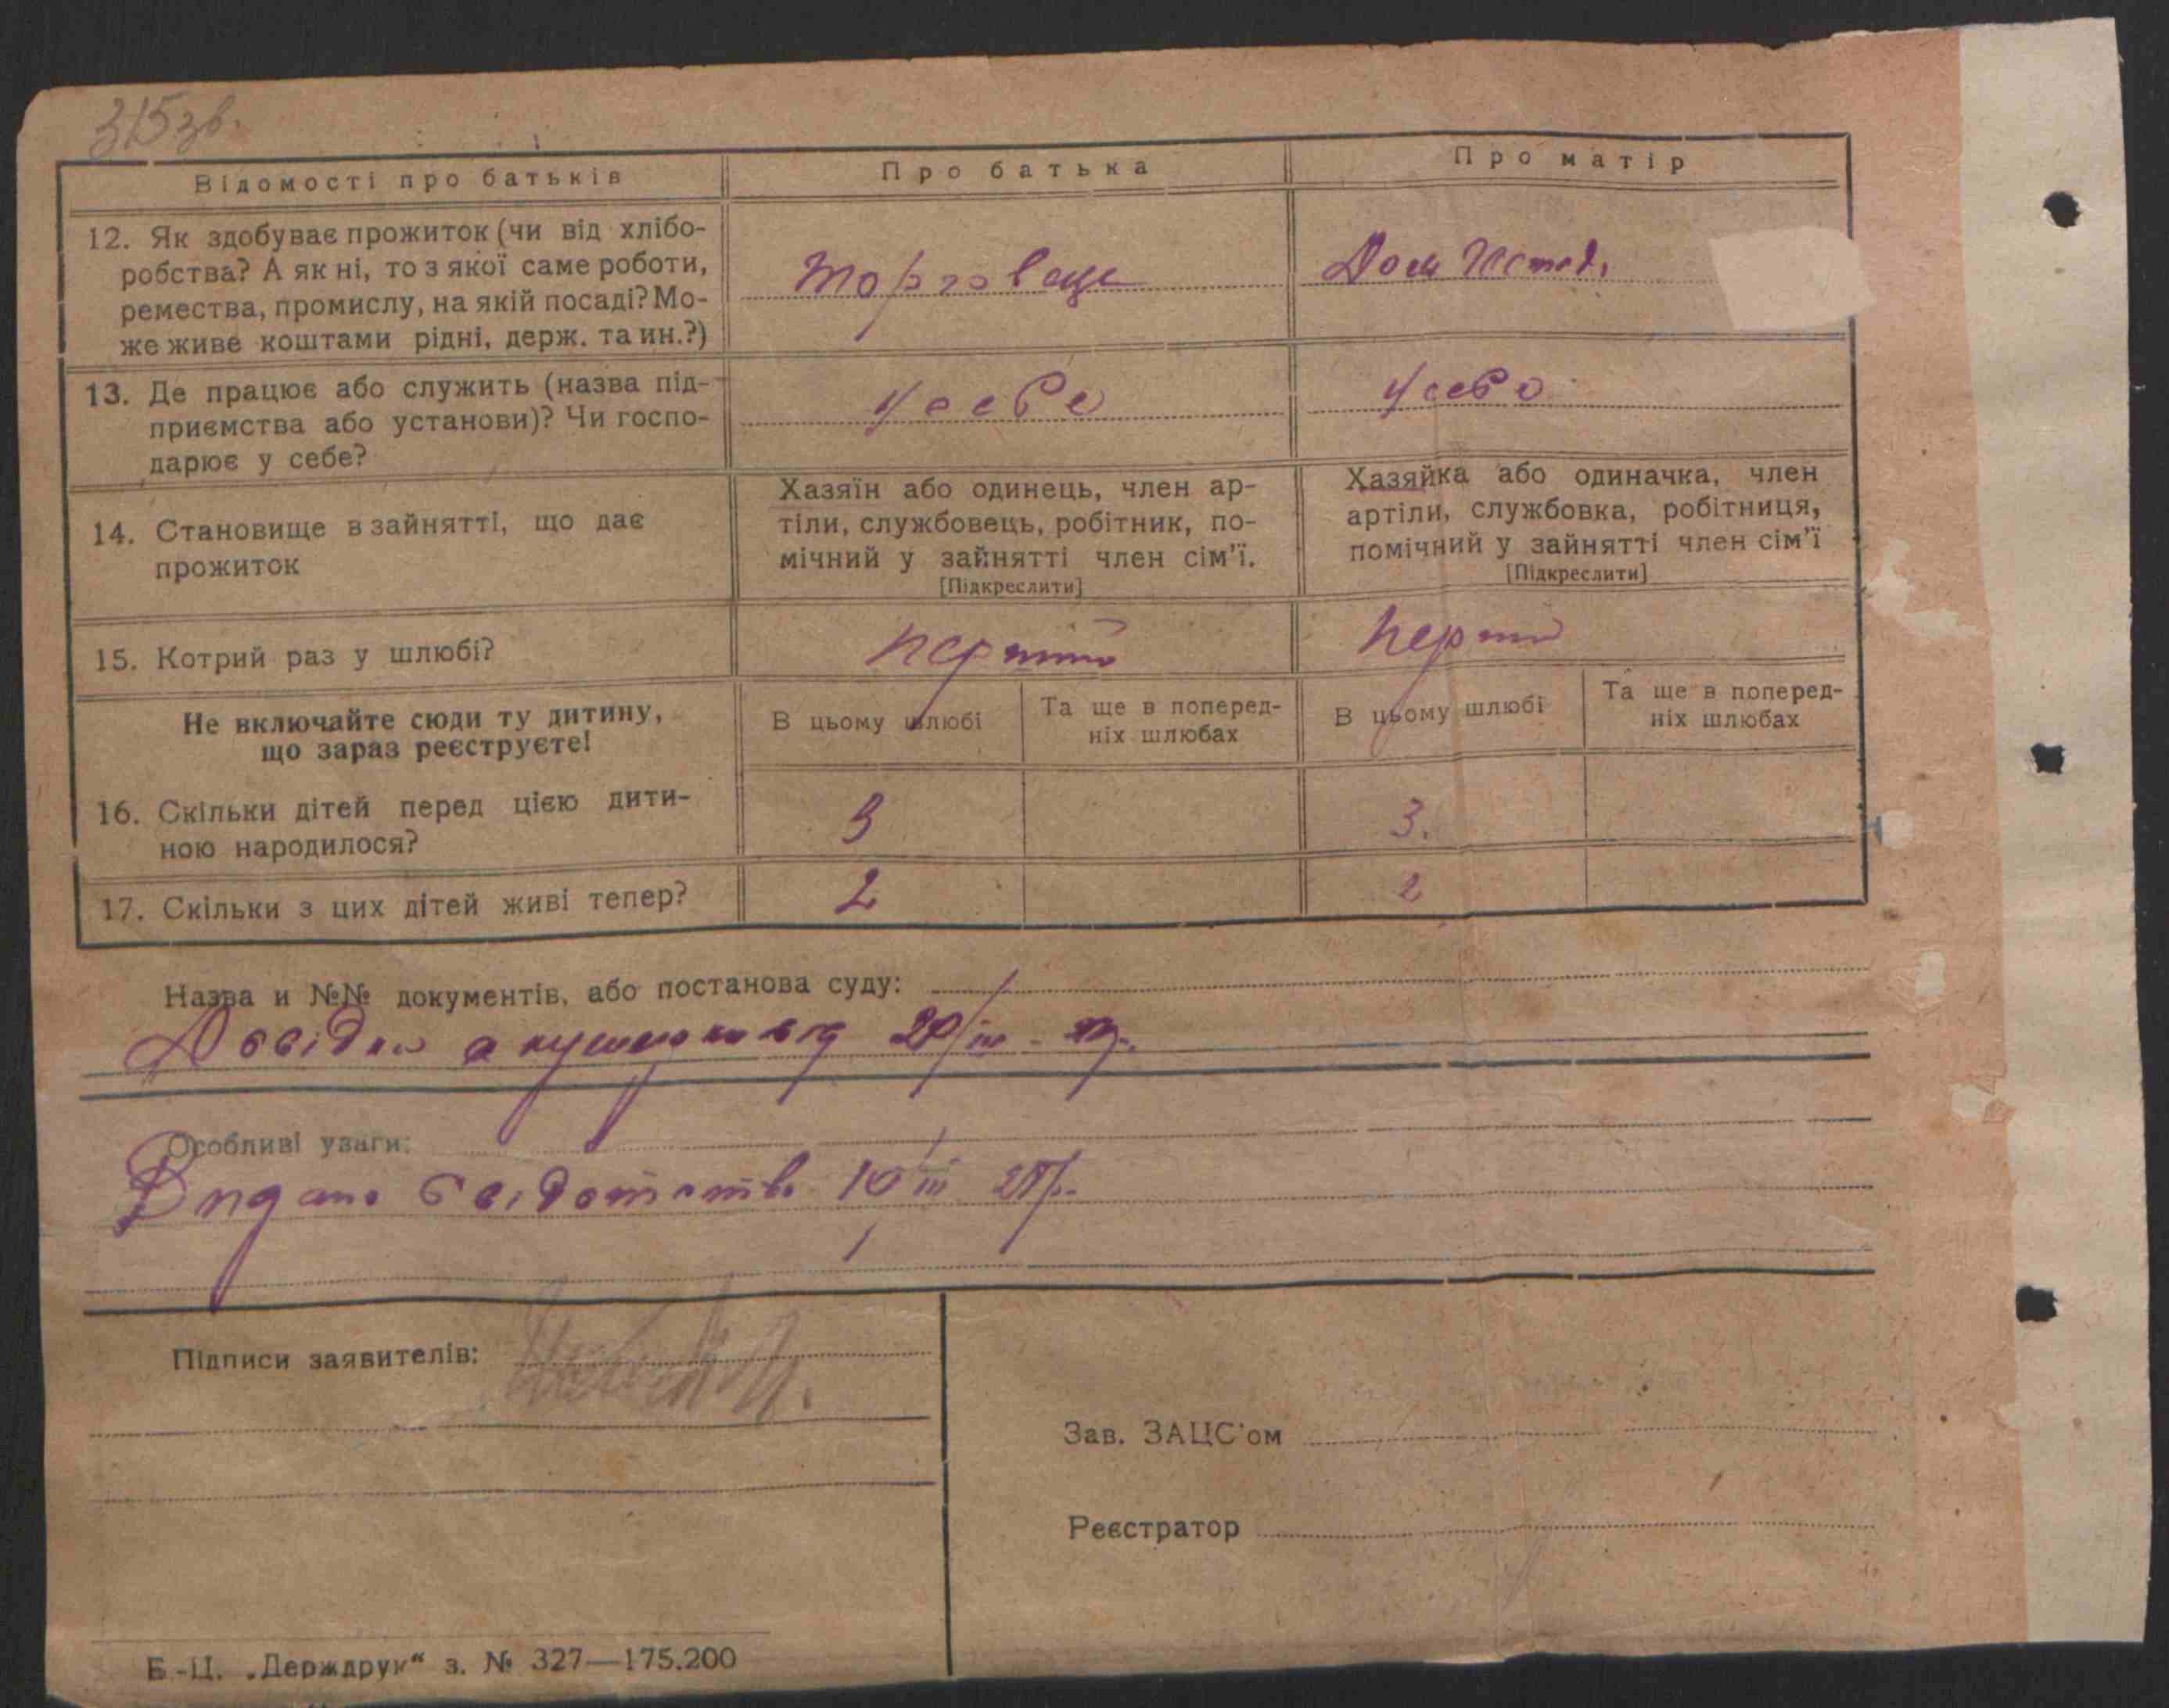 315зв.
Відомості про батьків
Про батька
Про матір
12. Як здобуває прожиток (чи від хлібо-
робства? А як ні, то з якої саме роботи,
ремества, промислу, на якій посаді? Мо-
же живе коштами рідні, держ. та ин.?)
Торговець
Дом
13. Де працює або служить (назва під-
приємства або установи)? Чи госпо-
дарює у себе?
У себе
У себе
14. Становище в зайнятті, що дає
прожиток
Хазяїн або одинець, член ар-
тіли, службовець, робітник, по-
мічний у зайнятті член сім'ї.
[Підкреслити]
Хазяйка або одиначка, член
артіли, службовка, робітниця,
помічний у зайнятті член сім'ї
[Підкреслити]
15. Котрий раз у шлюбі?
перший
перший
Не включайте сюди ту дитину,
що зараз реєструєте!
В цьому шлюбі
Та ще в поперед-
ніх шлюбах
В цьому шлюбі
Та ще в поперед-
ніх шлюбах
16. Скільки дітей перед цією дити-
ною народилося?
3
3.
17. Скільки з цих дітей живі тепер?
2
2
Назва и №№ документів, або постанова суду:
Довідка акушерки від
Особливі уваги:
Видано свідоцтво 10/III
Підписи заявителів:
Зав. ЗАЦС'ом
Реєстратор
Б-Ц. „Держдрук“ з. № 327—175.200